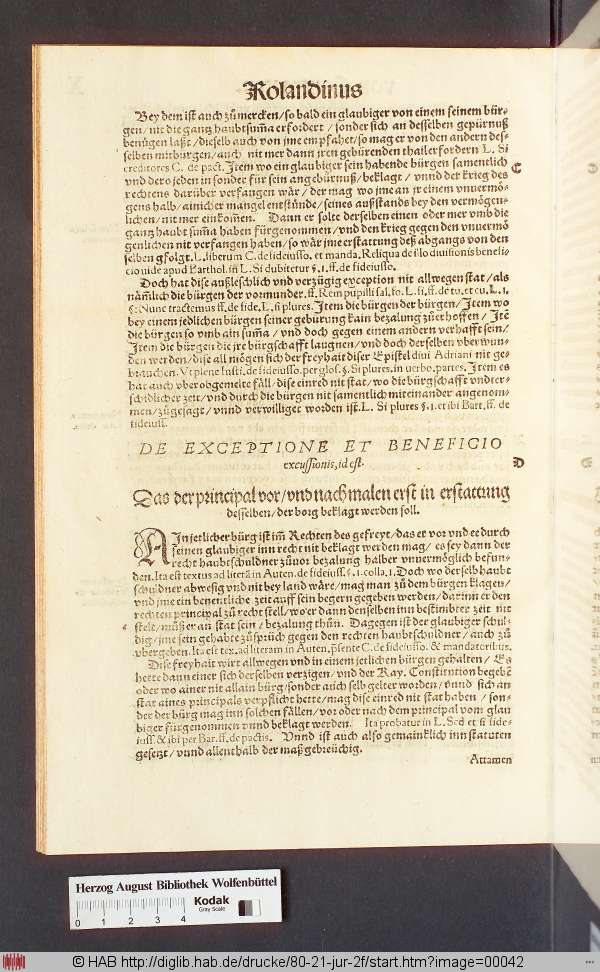 Rolandinus
Bey dem ist auch zůmercken/so bald ein glaubiger von einem seinem bür-
gen/nit die gantz haubtsum̃a erfordert/sonder sich an desselben gepürnuß
benügen laßt/dieselb auch von jme empfahet/so mag er von den andern des-
selben mitbürgen/auch nit mer dann jren gebürenden thail erfordern L. Si
creditores C. de pact. Item wo ein glaubiger sein habende bürgen samentlich
vnd dero jeden in sonder für sein angebürnuß/beklagt/vnnd der krieg des
rechtens darüber verfangen wår/der mag wo jme an jr einem vnuermö-
gens halb/ainicher mangel entstünde/seines außstands bey den vermögen-
lichen/nit mer einkom̃en. Dann er solte derselben einen oder mer vmb die
gantz haubt sum̃a haben fürgenommen/vnd den krieg gegen den vnuermö
genlichen nit verfangen haben/so wår jme erstattung deß abgangs von den
selben gfolgt. L. liberum C. de fideiusso. et manda. Reliqua de isto diuisionis benefi-
cio uide apud Barthol. in L. Si dubitetur §. 1. ff. de fideiusso.
Doch hat dise außleschlich vnd verzügig exception nit allwegen stat/als
nåmlich die bürgen der vormunder. ff. Rem pupilli sal. fo. L. si, ff. de tu. et cu. L. 1.
§. Nunc tractemus ff. de fide, L. si plures. Item die bürgen der bürgen/Item wo
bey einem jedlichen bürgen seiner gebürung kain bezalung zůerhoffen/Itē
die bürgen so vmb ain sum̃a/vnd doch gegen einem andern verhafft sein/
Item die bürgen die jre bürgschafft laugnen/vnd doch derselben vberwun-
den werden/dise all mögen sich der freyhait diser Epistel diui Adriani nit ge-
brauchen. Vt plene Insti. de fideiusso. per glos. §. Si plures. in uerbo. partes. Item es
hat auch vber obgemelte fåll/dise einred nit stat/wo die bürgschafft vndter-
schidlicher zeit/vnd durch die bürgen nit samentlich miteinander angenom-
men/zůgesagt/vnnd verwilliget worden ist. L. Si plures §. 1. et ibi Bart. ff. de
fideiuss.
C
DE EXCEPTIONE ET BENEFICIO
excussionis, id est.
D
Das der principal vor/vnd nachmalen erst in erstattung
desselben/der borg beklagt werden soll.
AIn jetlicher bürg ist im̃ Rechten des gefreyt/das er vor vnd ee durch
seinen glaubiger inn recht nit beklagt werden mag/es sey dann der
recht haubtschuldner zůuor bezalung halber vnuermöglich befun-
den. Ita est textus ad literā in Auten. de fideiuss. §. 1. colla. 1. Doch wo derselb haubt
schuldner abwesig vnd nit bey land wåre/mag man zů dem bürgen klagen/
vnd jme ein benentliche zeit auff sein begern gegeben werden/darinn er den
rechten principal zů recht stell/wo er dann denselben inn bestimbter zeit nit
stelt/můß er an stat sein/bezalung thůn. Dagegen ist der glaubiger schul-
dig/jme sein gehabte zůsprüch gegen den rechten haubtschuldner/auch zů
vbergeben. Ita est tex. ad literam in Auten. p̄sente C. de fideiusso. & mandatoribus.
Dise freyhait wirt allwegen vnd in einem jetlichen bürgen gehalten/Es
hette dann einer sich derselben verzigen/vnd der Kay. Constitution begebē
oder wo ainer nit allain bürg/sonder auch selbgelter worden/vnnd sich an
stat aines principals verpflicht hette/mag dise einred nit stat haben/son-
der der bürg mag inn solchen fållen/vor oder nach dem principal vom glau
biger fürgenommen vnnd beklagt werden. Ita probatur in L. Sed et si fide-
iuss. & ibi per Bar. ff. de pactis. Vnnd ist auch also gemainklich inn statuten
gesetzt/vnnd allenthalb der maß gebreüchig.
Attamen
Herzog August Bibliothek Wolfenbüttel
Kodak
Gray Scale
0 1 2 3 4
© HAB http://diglib.hab.de/drucke/80-21-jur-2f/start.htm?image=00042